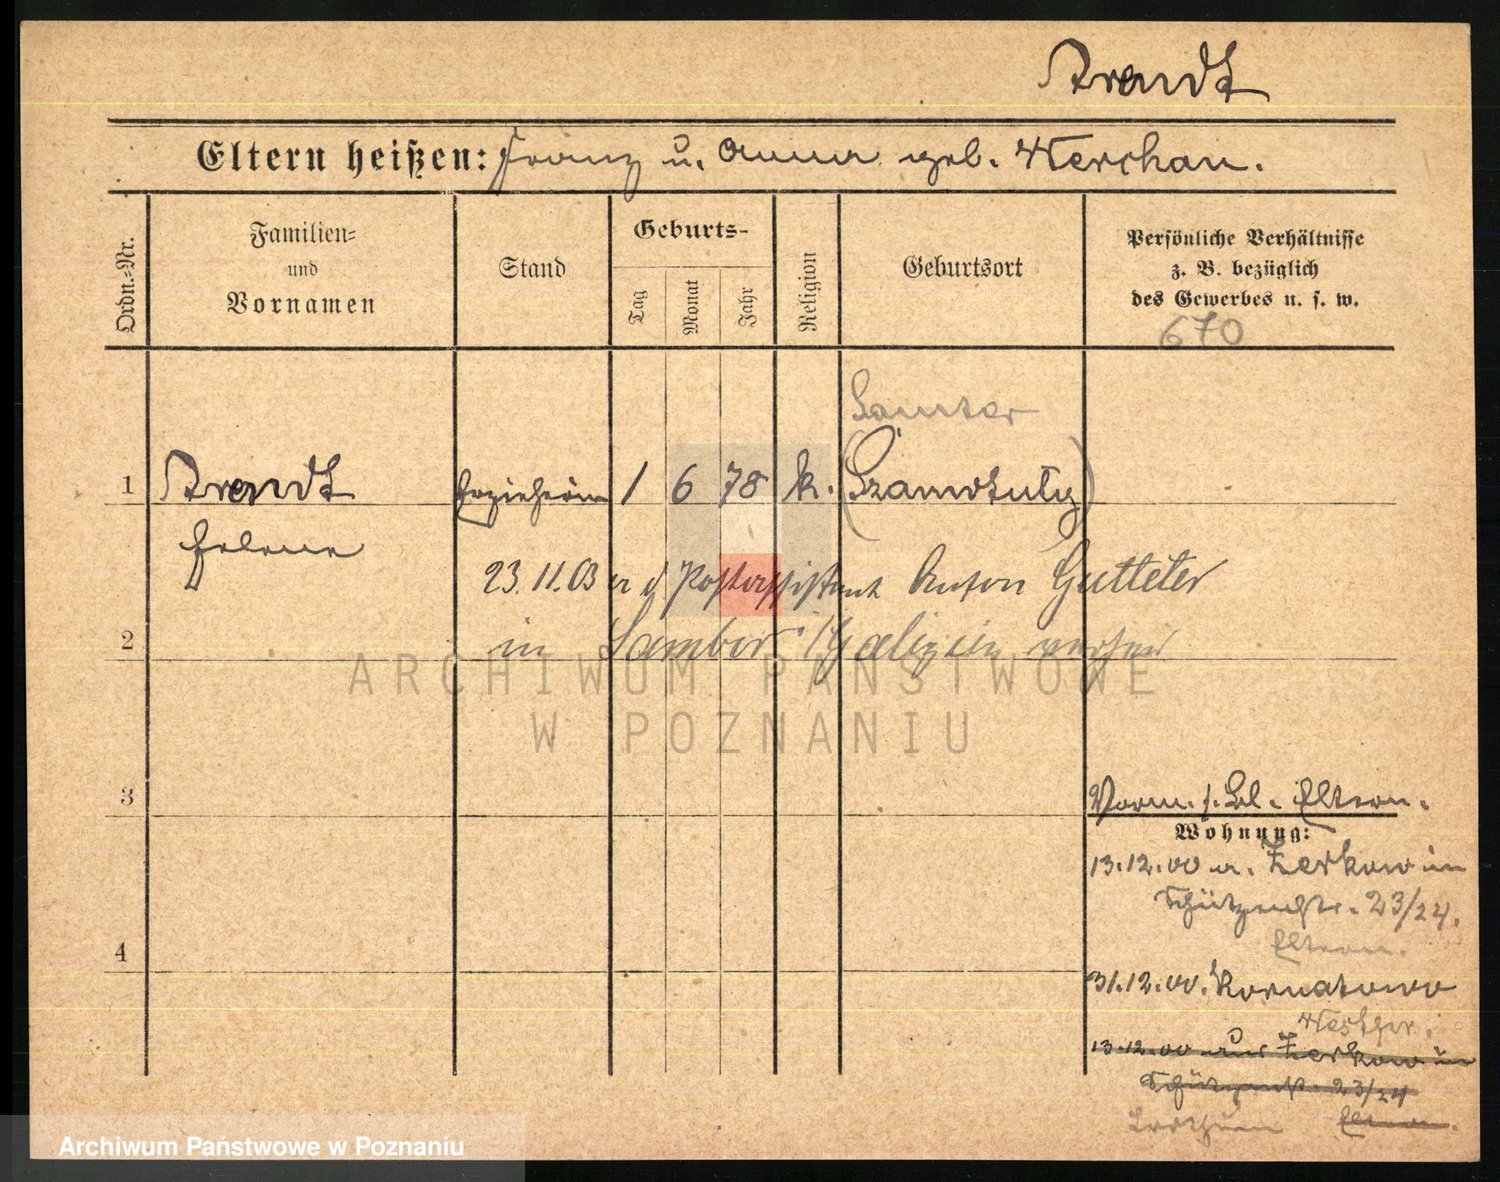 Arendt
Eltern heißen: Franz u. Anna geb. Merchan.
Ordn.-Nr.
Familien-
und
Vornamen
Stand
Geburts-
Tag
Monat
Jahr
Religion
Geburtsort
Persönliche Verhältnisse
z. B. bezüglich
des Gewerbes u. s. w.
670
Samter
1 Arendt Erzieherin 1 6 78 k. (Szamotuły)
Helene
23.11.03 a d Postassistent Anton Gutteter
2 in Sambor /Galizien
ARCHIWUM PAŃSTWOWE
W POZNANIU
3
Vorm. s. Bl. Eltern.
Wohnung:
13.12.00 a. Zerkow in
Schützenstr. 23/24.
Eltern.
4
31.12.00. Kornatowo
Westpr.
13.12.00 aus Zerkow in
Schützenstr. 23/24
Eltern.
Archiwum Państwowe w Poznaniu